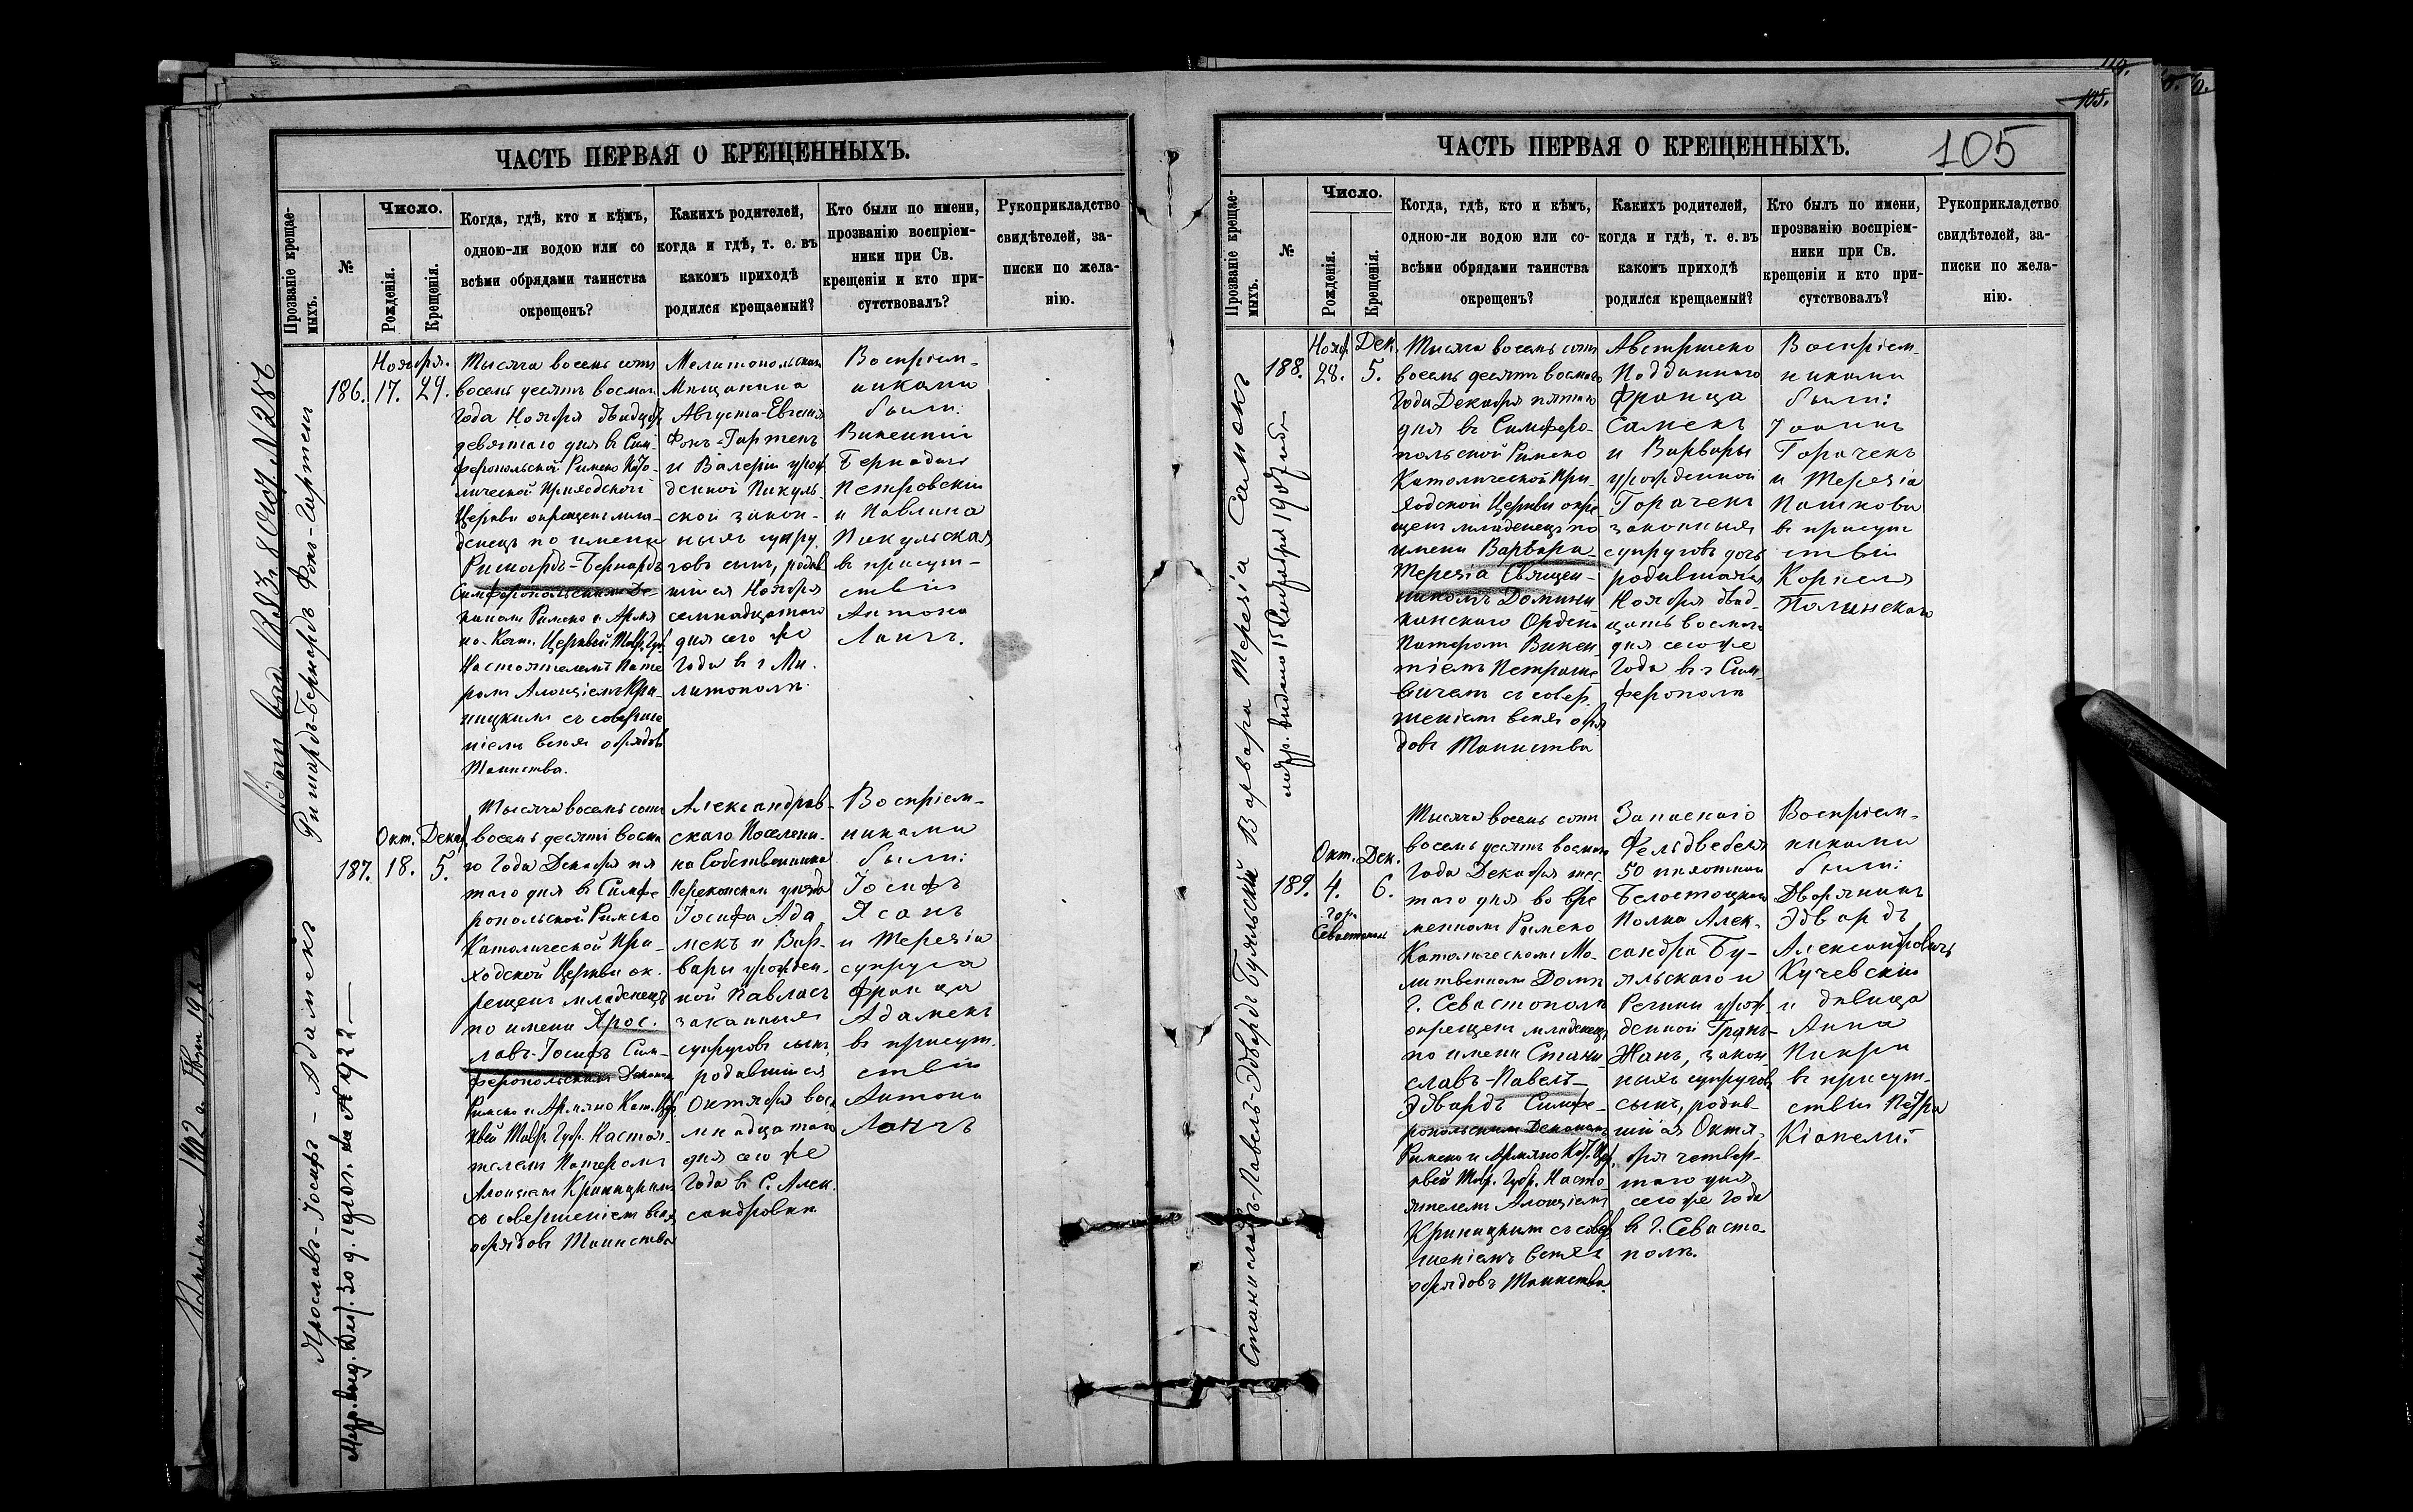 ЧАСТЬ ПЕРВАЯ О КРЕЩЕННЫХЪ.
Прозваніе крещае-
мыхъ.
№
Число.
Рожденія.
Крещенія.
Когда, гдѣ, кто и кѣмъ,
одною-ли водою или со
всѣми обрядами таинства
окрещенъ?
Какихъ родителей,
когда и гдѣ, т. е. въ
какомъ приходѣ
родился крещаемый?
Кто были по имени,
прозванію воспріем-
ники при Св.
крещеніи и кто при-
сутствовалъ?
Рукоприкладство
свидѣтелей, за-
писки по жела-
нію.
Ришардъ-Бернардъ Фонъ-Гартенъ
186.
Ноября.
17. 29.
Тысяча восемь сотъ
восемь десятъ восмаго
Года Ноября двадцать
девятаго дня въ Сим-
феропольской Римско Като-
лической Приходской
Церкви окрещенъ мла-
денецъ по имени
Ришардъ-Бернардъ
Симферопольскимъ Де-
каномъ Римско и Армя
но-Кат. Церквей Тавр. Губ.
Настоятелемъ Пате
ромъ Алоизіемъ Кри-
ницкимъ съ соверше
ніемъ всехъ обрядовъ
Таинства.
Мелитопольскаго
Мищанина
Августа-Евгенія
Фонъ-Гартенъ
и Валеріи урож
денной Пикуль-
ской закон-
ныхъ супру
говъ сынъ, родив
шійся Ноября
семнадцатаго
дня сего же
Года въ г. Ме
литополѣ.
Воспріем-
никами
были:
Викентій
Бернадъ
Петровскій
и Павлина
Пикульская
въ присут-
ствіи
Антона
Лангъ.
Ярославъ-Іосифъ - Адамекъ
187.
Окт. Декаб.
18. 5.
Тысяча восемь сотъ
восемь десятъ восма
го Года Декабря пя
таго дня въ Симфе
ропольской Римско
Католической При-
ходской Церкви ок-
рещенъ младенецъ
по имени Ярос-
лавъ-Іосифъ Сим-
феропольскимъ Деканомъ
Римско и Армяно Кат. Цер
квей Тавр. Губ. Настоя-
телемъ Патеромъ
Алоизіемъ Криницкимъ
со совершеніемъ всехъ
обрядовъ Таинства
Александров-
скаго Поселяни-
на Собственника
Перекопскаго уѣзда
Іосифа Ада
мекъ и Вар-
вары урожден-
ной Павласъ
законныхъ
супруговъ сынъ
родившійся
Октября вос
мнадцатаго
дня сего же
Года въ С. Алек-
сандровкѣ
Воспріем-
никами
были:
Іосифъ
Ясанъ
и Терезія
супруга
Франца
Адамекъ
въ присут-
ствіи
Антона
Лангъ
105.
105
ЧАСТЬ ПЕРВАЯ О КРЕЩЕННЫХЪ.
Прозваніе крещае-
мыхъ.
№
Число.
Рожденія.
Крещенія.
Когда, гдѣ, кто и кѣмъ,
одною-ли водою или со-
всѣми обрядами таинства
окрещенъ?
Какихъ родителей,
когда и гдѣ, т. е. въ
какомъ приходѣ
родился крещаемый?
Кто былъ по имени,
прозванію воспріем-
ники при Св.
крещеніи и кто при-
сутствовалъ?
Рукоприкладство
свидѣтелей, за-
писки по жела-
нію.
Варвара Терезія Самекъ
188.
Нояб. Дек.
28. 5.
Тысяча восемь сотъ
восемь десятъ восмаго
Года Декабря пятаго
дня въ Симферо-
польской Римско
Католической При-
ходской Церкви окре-
щенъ младенецъ по
имени Варвара-
Терезія Священ-
никомъ Домини-
канскаго Ордена
Патеромъ Викен-
тіемъ Петраше-
вичемъ съ совер-
шеніемъ всехъ обря
довъ Таинства
Австрійско
Подданнаго
Франца
Самекъ
и Варвары
урожденной
Горачекъ
законныхъ
супруговъ дочь
родившаяся
Ноября двад-
цать восмаго
дня сего же
Года въ г. Сим
ферополѣ
Воспріем-
никами
были:
Іоаннъ
Горачекъ
и Терезія
Пашкова
въ присут
ствіи
Корнелія
Станиславъ-Павелъ-Эдвардъ Буяльскій
189.
Окт. Дек.
4. 6.
гор.
Севастополь
Тысяча восемь сотъ
восемь десятъ восмаго
Года Декабря шес-
таго дня во вре
менномъ Римско
Католическомъ Мо-
литвенномъ Домѣ
г. Севастополя
окрещенъ младенецъ
по имени Стани
славъ-Павелъ-
Эдвардъ Симфе-
ропольскимъ Деканомъ
Римско и Армяно Кат. Цер
квей Тавр. Губ. Насто-
ятелемъ Алоизіемъ
Криницкимъ съ совер
шеніемъ всехъ
обрядовъ Таинства.
Запаснаго
Фельдвебеля
50 пѣхотнаго
Белостоцкаго
Полка Алек-
сандра Бу-
яльскаго и
Регины урож-
денной
закон
ныхъ супруговъ
сынъ, родив-
шійся Октя-
бря четвер-
таго дня
сего же Года
въ г. Севасто-
полѣ.
Воспріем-
никами
были:
Дворянинъ
Эдвардъ
Александровичъ
Кучевскій
и дѣвица
Анна
въ присут-
ствіи Петра